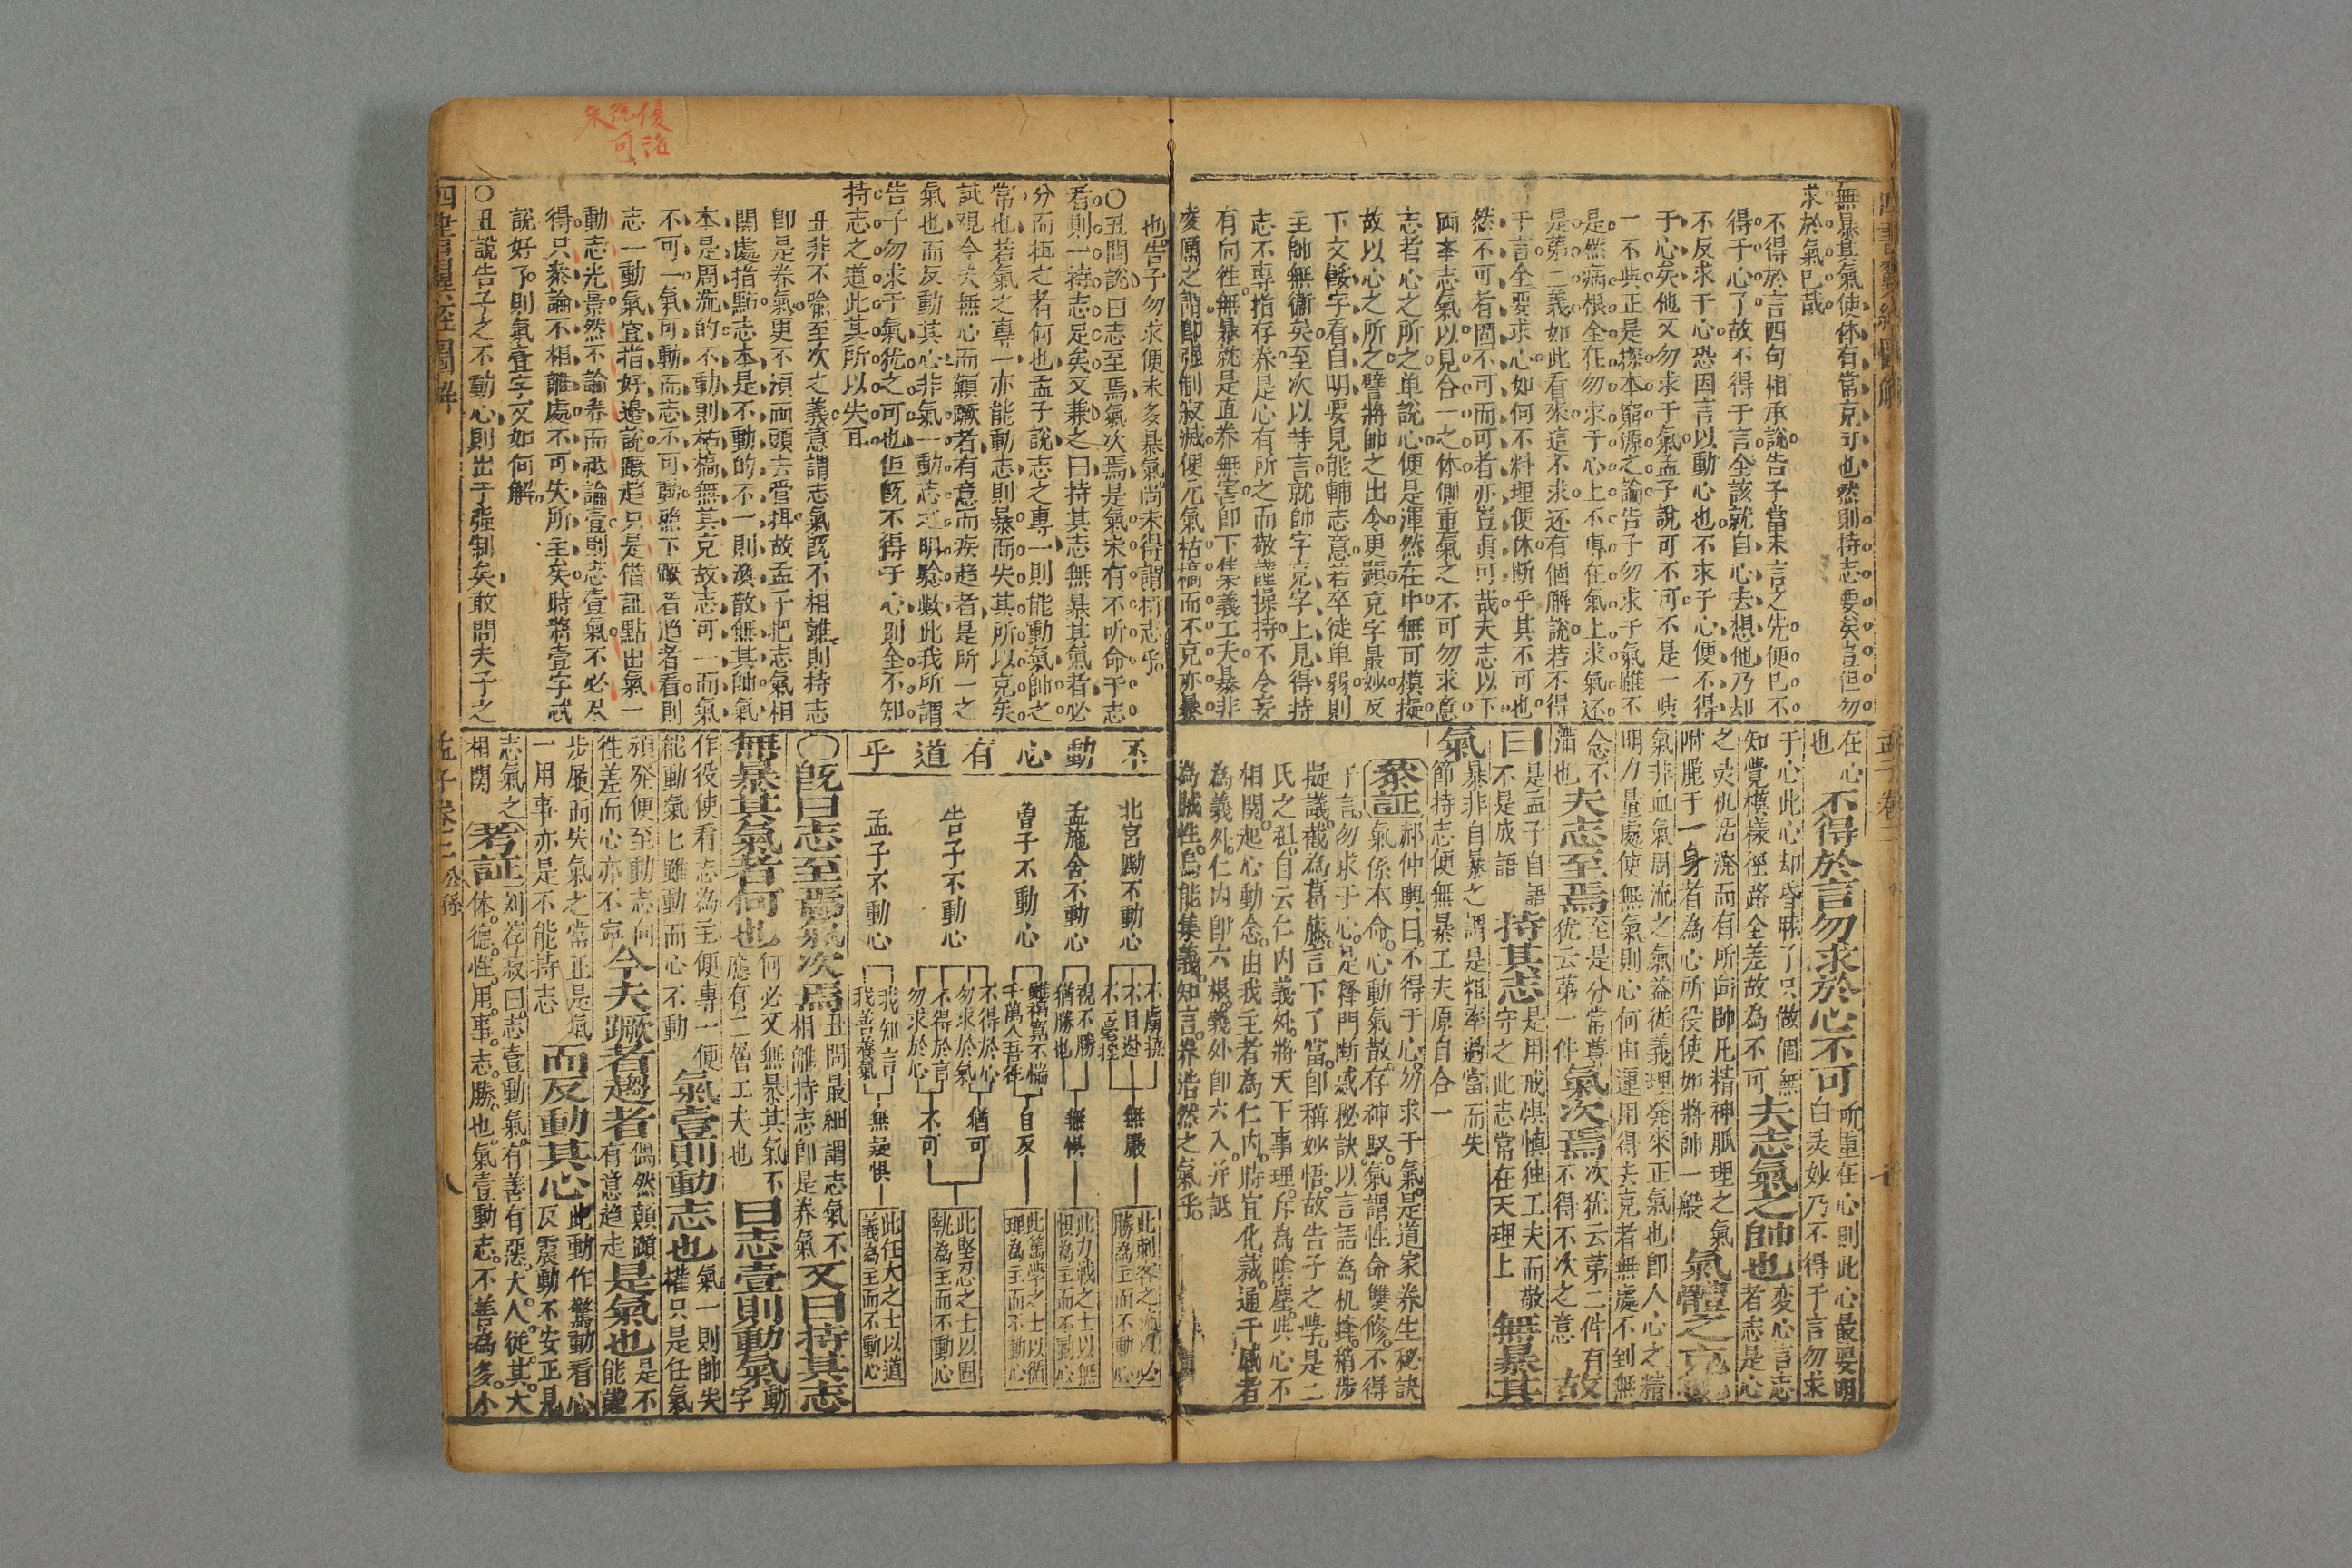 無暴其氣使体有常克可也然則持志要矣豈但勿
求於氣已哉
不得於言四句相承說告子當未言之先便已不
得于心了故不得于言全該就自心去想他乃却
不反求于心恐因言以動心也不求于心便不得
于心矣他又勿求于氣孟子說可不可不是一與
一不與正是探本窮源之論告子勿求于氣雖不
是然病根全在勿求于心上不專在氣上求氣还
是第二義如此看來這不求还有個解說若不得
于言全要求心如何不料理便休斷乎其不可也
然不可者固不可而可者亦豈真可哉夫志以下
両奉志氣以見合一之体側重氣之不可勿求意
志者心之所之单說心便是渾然在中無可模擬
故以心之所之譬將帥之出令更顯克字最妙反
下文餒字看自明要見能輔志意若卒徒单弱則
主帥無衛矣至次以等言就帥字克字上見得持
志不專指存养是心有所之而敬謹操持不令妄
有向徃無暴就是直养無害即下集義工夫暴非
凌厲之謂即强制寂滅便元氣枯槁而不克亦暴
在心
也
不得於言勿求於心不可
所重在心則此心最要明
白灵妙乃不得于言勿求
于心此心却昏麻了只做個無
知覺模樣徑路全差故為不可
夫志氣之帥也
変心言志
者志是心
之灵机活潑而有所向帥乃精神脈理之氣
附麗于一身者為心所役使如將帥一般
氣體之充也
氣非血氣周流之氣益從義理発來正氣也即人心之精
明力量處使無氣則心何由運用得去克者無處不到無
念不
滿也
夫志至焉
至是分常尊
犹云第一件
氣次焉
次犹云第二件有
不得不次之意
故
曰
是孟子自語
不是成語
持其志
是用戒惧慎独工夫而敬
守之此志常在天理上
無暴其
氣
暴非自暴之謂是粗率過當而失
節持志便無暴工夫原自合一
叅証
郝仲輿曰不得于心勿求于氣是道家养生秘訣
氣係本命心動氣散存神馭氣謂性命雙修不得
于言勿求于心是釋門断惑秘訣以言語為机鋒稍涉
擬議截為葛藤言下了當即稱妙悟故告子之學是二
氏之祖自云仁内義外將天下事理斥為陰塵與心不
相関起心動念由我主者為仁内時宜化裁通千感者
為義外仁内即六根義外即六入并詆
為賊性烏能集義知言养浩然之氣乎
也告子勿求便未多暴氣尚未得謂持志乎
○丑問說曰志至焉氣次焉是氣未有不听命于志
看則一持志足矣又兼之曰持其志無暴其氣者必
分而抇之者何也孟子說志之專一則能動氣帥之
常也若氣之專一亦能動志則暴而失其所以克矣
試覌今夫無心而顛蹶者有意而疾趋者是所一之
氣也而反動其心非氣一動志之明驗歟此我所謂
告子勿求于氣犹之可也但既不得于心則全不知
持志之道此其所以失耳
丑非不喩至次之義意謂志氣既不相離則持志
即是养氣更不湏両頭去管抇故孟子把志氣相
関處指點志本是不動的不一則渙散無其帥氣
本是周流的不動則枯槁無其克故志可一而氣
不可一氣可動而志不可動然下蹶者趋者看則
志一動氣宜指好邉說蹶趋只是借証點出氣一
動志光景然不論养而祗論壹則志壹氣不必及
得只泰論不相離處不可失所主矣時將壹字忒
說好了則氣壹字又如何解
○丑說告子之不動心則出于强制矣敢問夫子之
不動心有道乎
北宮黝不動心
不膚撓
不目逃
不一毫挫
無嚴
此刺客之流以必
勝為主而不動心
孟施舍不動心
視不勝
猶勝也
無惧
此力戦之士以無
惧為主而不動心
曾子不動心
雖褐寬不惴
千萬人吾徃
自反
此篤學之士以循
理為主而不動心
告子不動心
不得於心
勿求於氣
猶可
不得於言
勿求於心
不可
此堅忍之士以固
執為主而不動心
孟子不動心
我知言
我善養氣
無疑惧
此任大之士以道
義為主而不動心
○既曰志至焉氣次焉
丑問最細謂志氣不
相離持志即是养氣
又曰持其志
無暴其氣者何也
何必又無暴其氣不
應有二層工夫也
曰志壹則動氣
動
字
作役使看志為主便專一便
能動氣匕雖動而心不動
氣壹則動志也
氣一則帥失
權只是任氣
頑発便至動志向
徃差而心亦不寧
今夫蹶者趨者
偶然顛躓
有意趋走
是氣也
是不
能謹
步履而失氣之常正是氣
一用事亦是不能持志
而反動其心
此動作驚動看心
反震動不安正見
志氣之
相関
考証
刘荐菽曰志壹動氣有善有惡大人從其大
体德性用事志勝也氣壹動志不善為多小
四書聖賢心訣圖解
孟子卷二 公孫
八